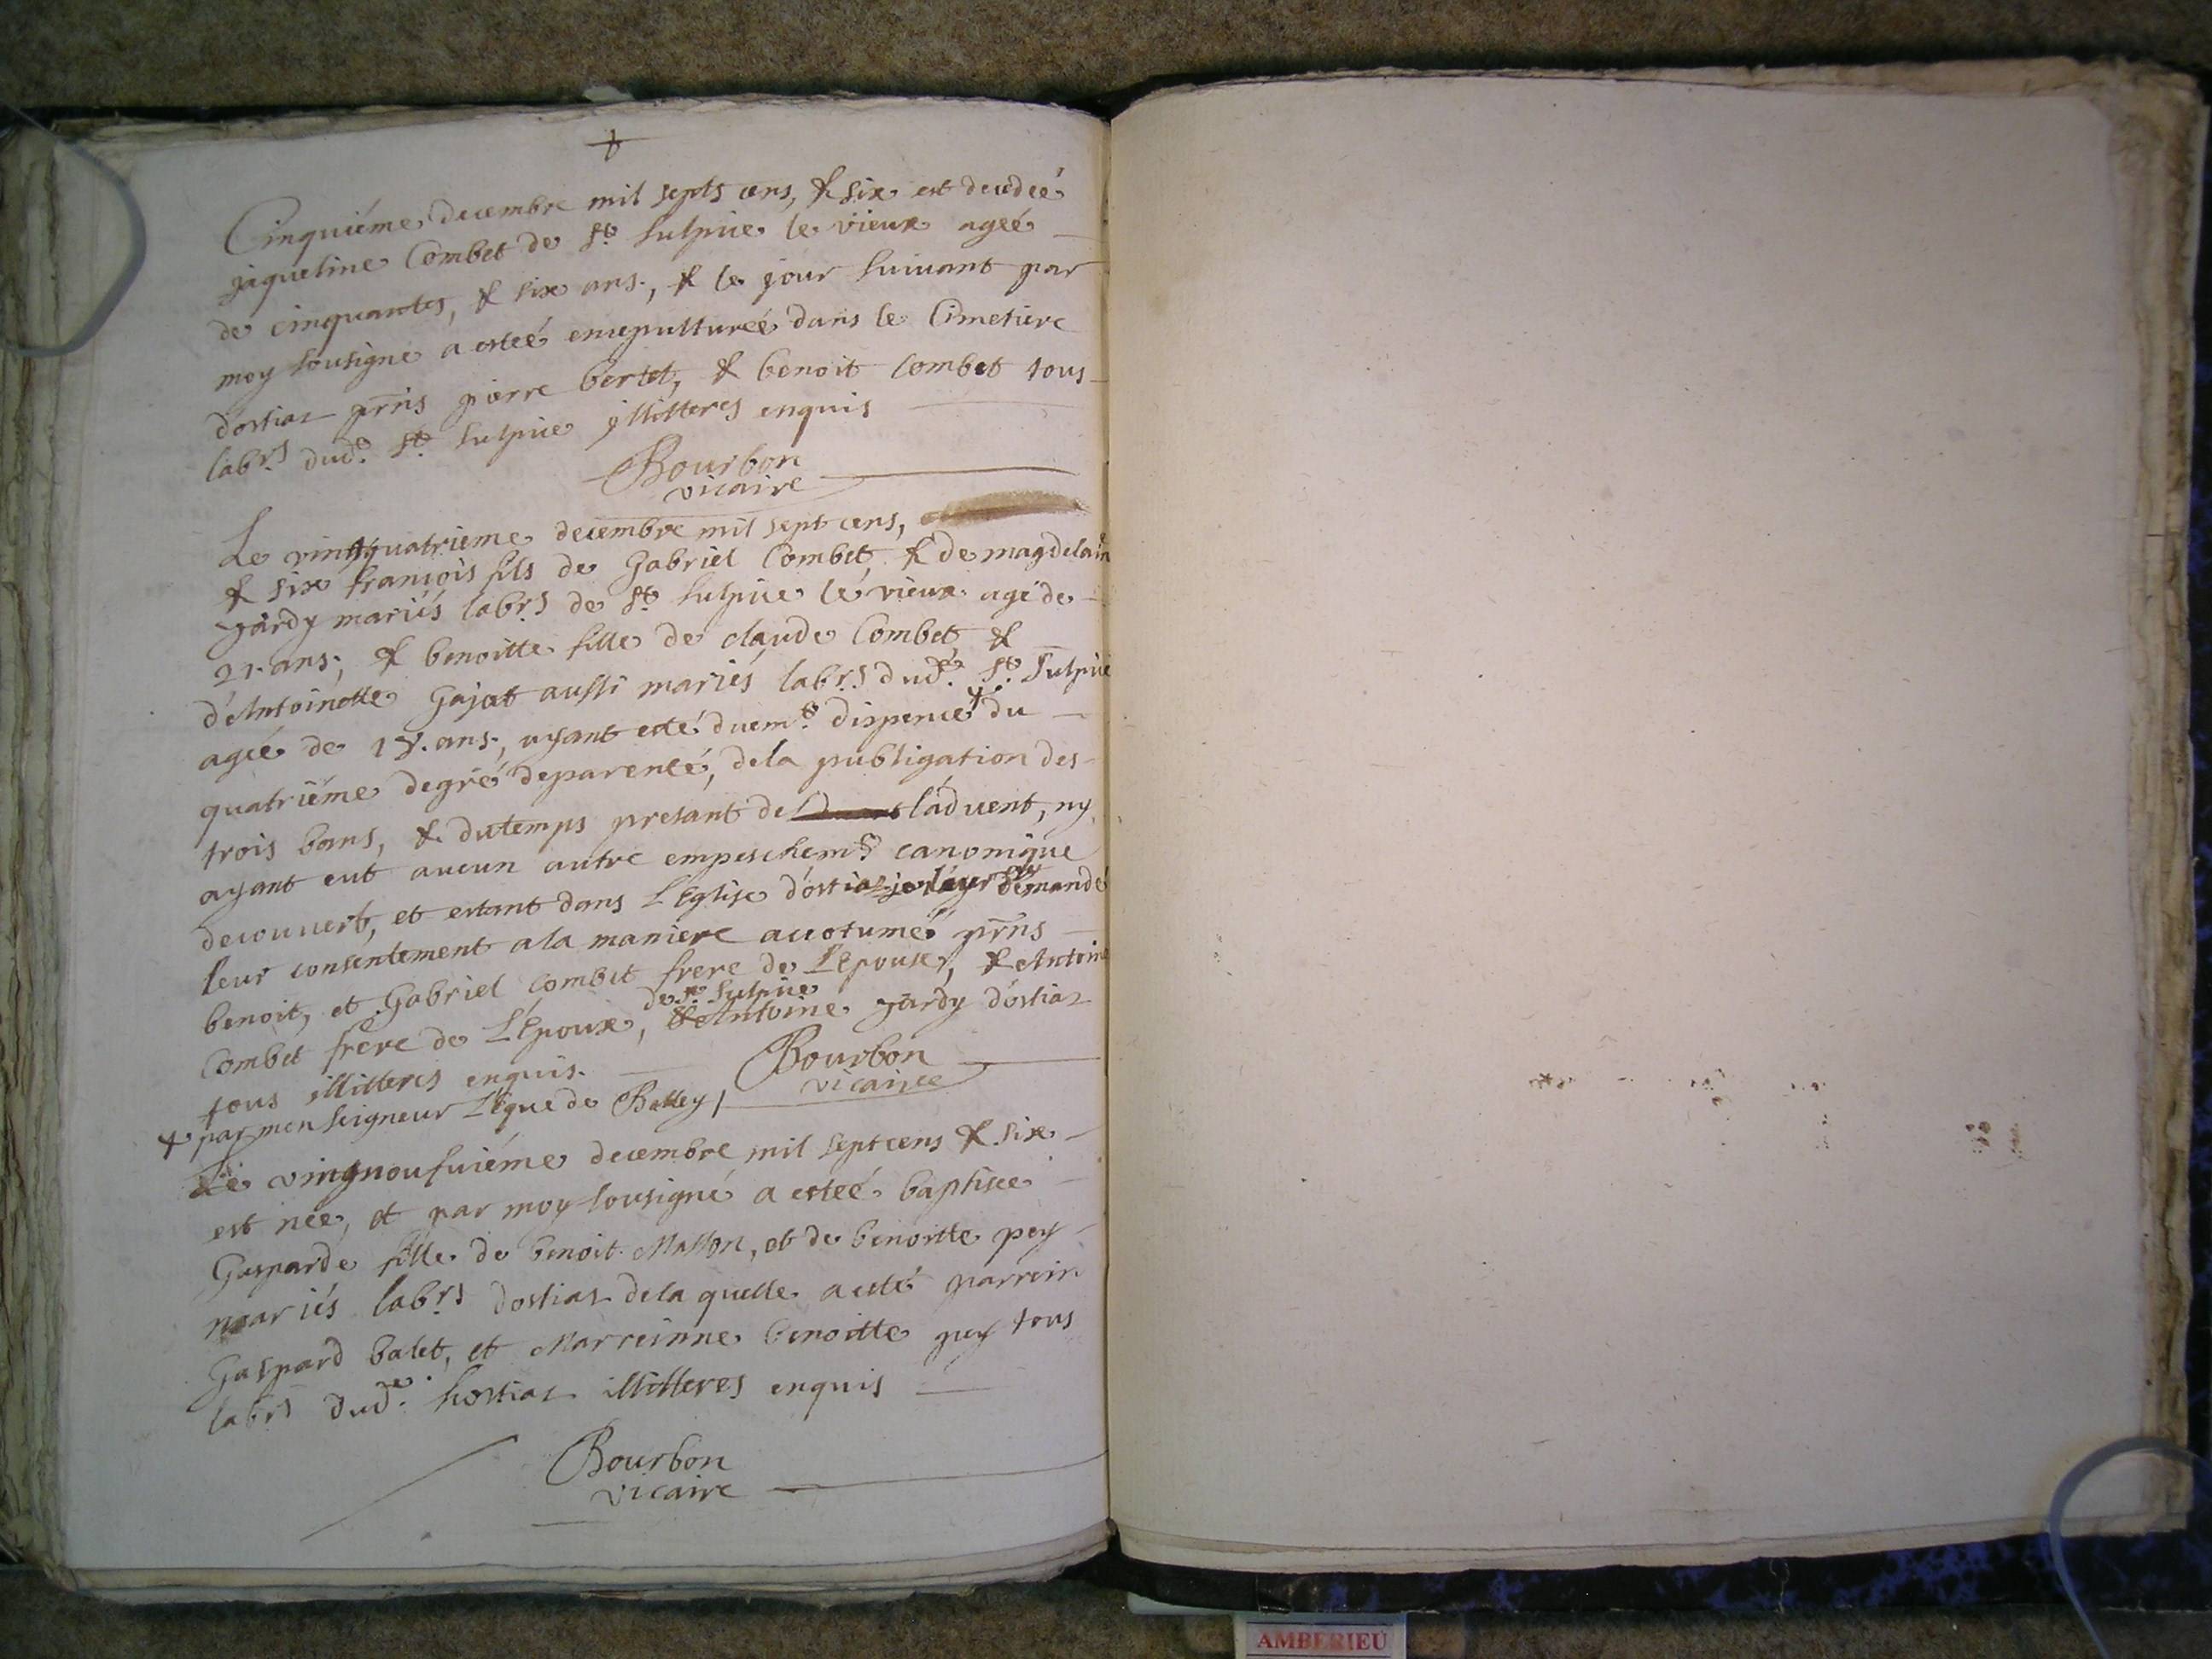 Cinquiéme decembre mil septs cens, & six est decedeé
jaqueline Combet de St. Sulpice le vieux ageé
de cinquantes, & six ans., & le jour suivant par
moy sousigné a esteé ensepultureé dans le Cimetiere
d'ostiaz pr͞ns pierre bertet, & benoit Combet tous
labrs. dud. St. Sulpice jllitteres enquis
Bourbon
vicaire
Le vingtquatrieme decembre mil sept cens,
& six françois fils de Gabriel Combet, & de magdelain
jàrdy mariés labrs. de St. Sulpice le vieux agé de
21. ans; & benoitte fille de claude Combet &
d'Antoinette Gajat aussi mariés labrs. dud. St. Sulpice
ageé de 18. ans, ayant esté duemt. dispencé + du
quatriéme degré deparenté, dela publigation des
trois bans, & dutemps presant de l'advent, ny
ayant eut aucun autre empeschemt. canonique
decouvert, et estant dans L'Eglise d'ostiaz je láyr ay demandé
leur consentement a la maniere accotumeé pr͞ns
benoit, et Gabriel Combet frere de L'Epouse, & Antoine
de St. Sulpice
Combet frere de L'Epoux, & Antoine jardy d'ostiaz
tous illitteres enquis.
Bourbon
vicaire
+ par monseigneur L'éque de Belley /
Le vingnoufuiéme decembre mil septcens & six
est neé, et par moy sousigné a esteé baptiseé
Gasparde fille de benoit Masson, et de benoitte pey
mariés labrs. dostiaz dela quelle a esté parrein
Gaspard balet, et Marreinne benoitte pey tous
labrs dud. hostiaz illitteres enquis
Bourbon
vicaire
AMBERIEU